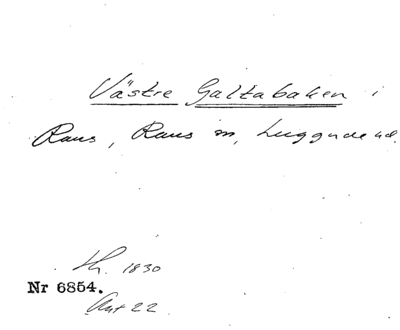 Västre Galtabaken i
Raus, Raus sn, Luggude hd.
Lh. 1830
Nr 6854.
Ant 22